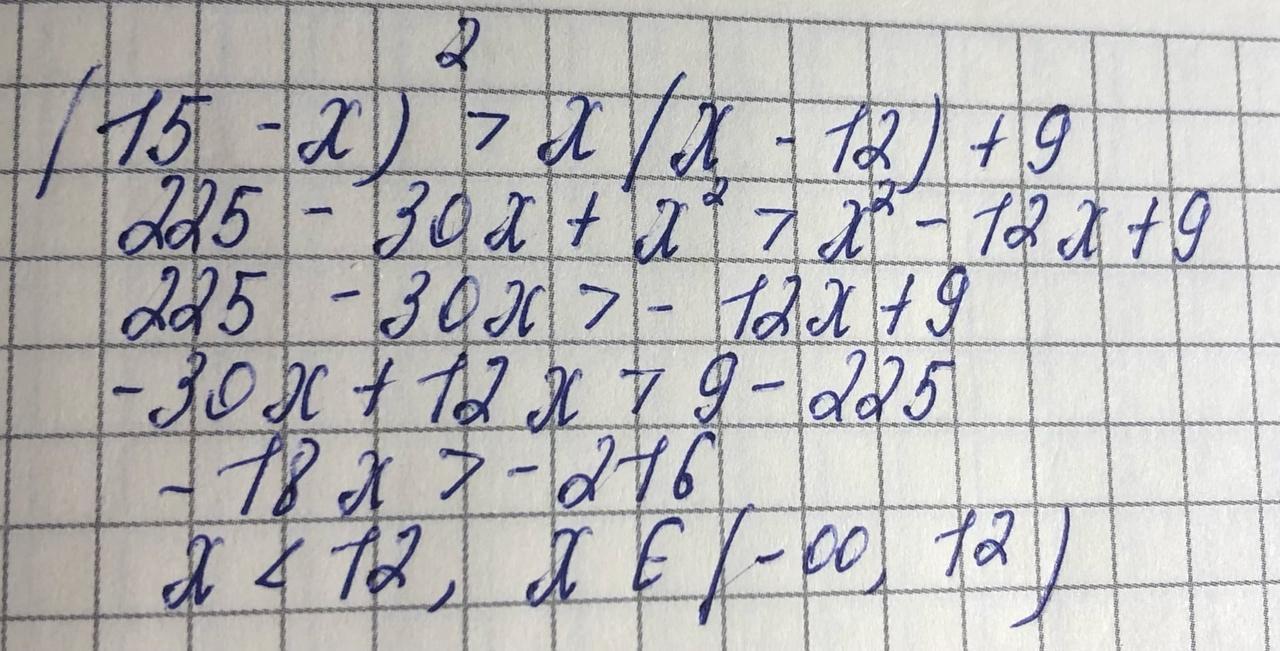 (15 - x)² > x(x - 12) + 9
225 - 30x + x² > x² - 12x + 9
225 - 30x > - 12x + 9
-30x + 12x > 9 - 225
- 18x > - 216
x < 12, x ∈ (-∞, 12)